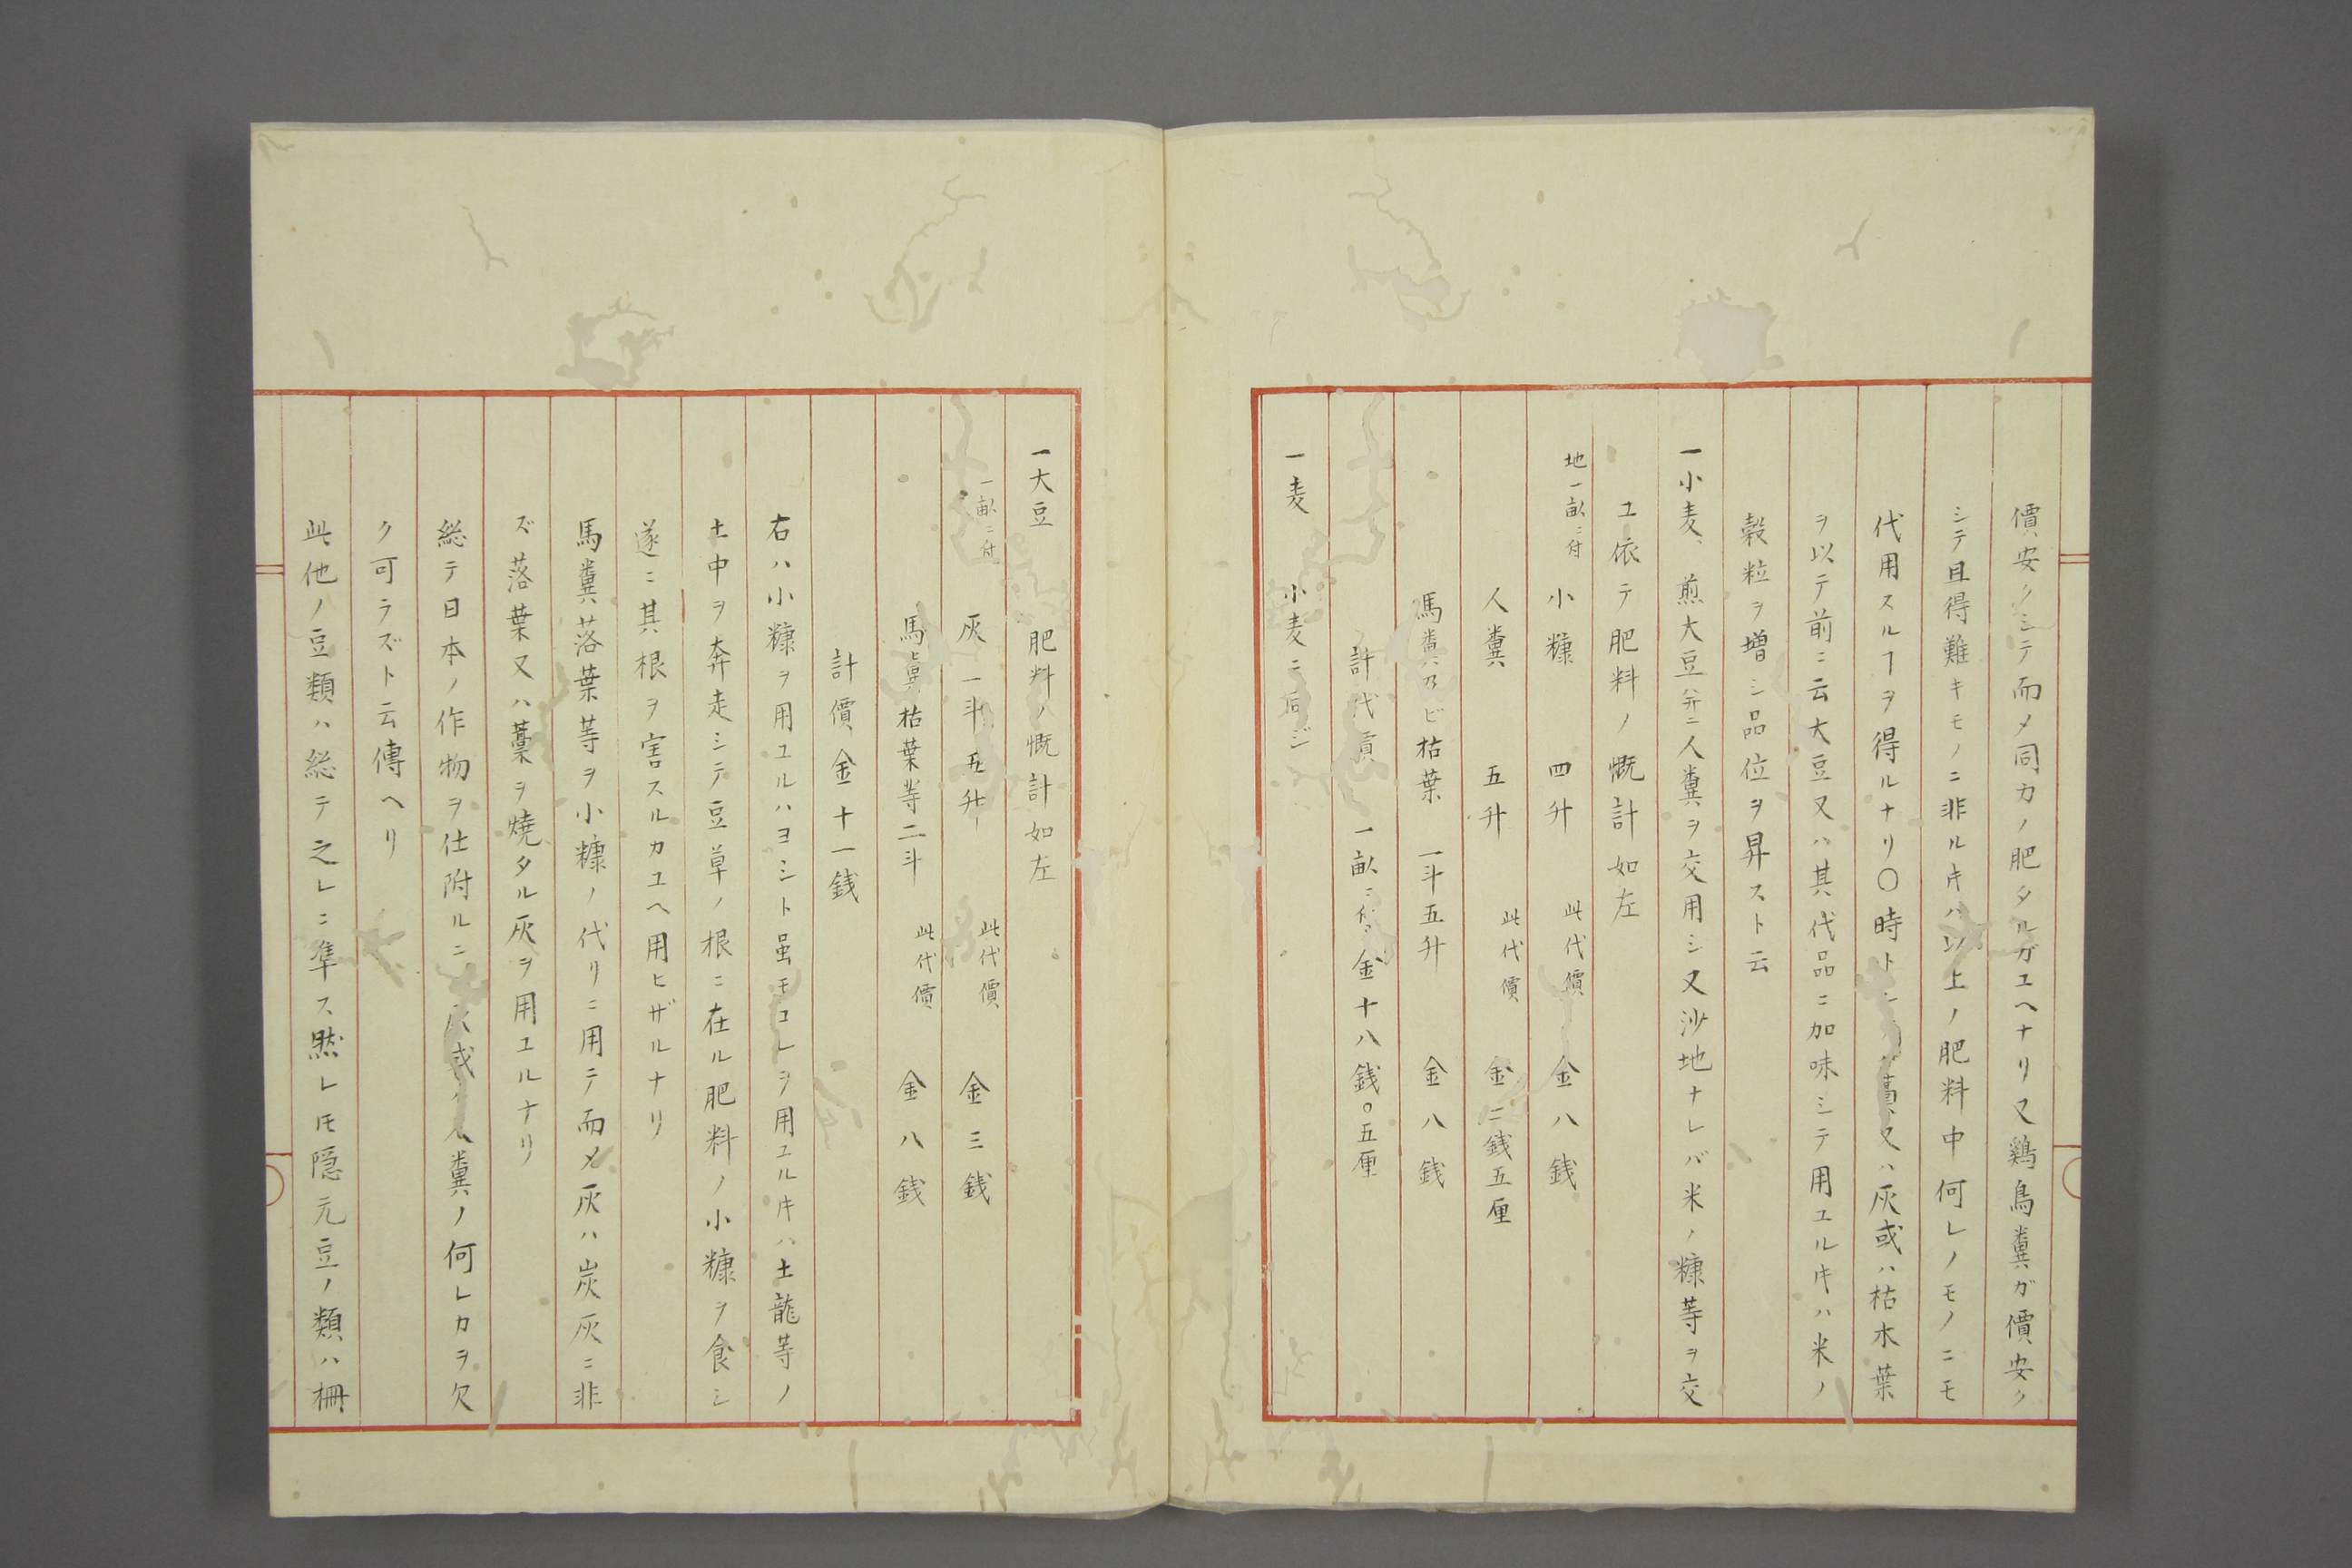 價安クシテ而メ同力ノ肥タルガユヘナリ又鷄鳥糞ガ價安ク
シテ且得難キモノニ非ルキハ以上ノ肥料中何レノモノニモ
代用スルヿヲ得ルナリ〇時ト 藁又ハ灰或ハ枯木葉
ヲ以テ前ニ云大豆又ハ其代品ニ加味シテ用ユルキハ米ノ
穀粒ヲ増シ品位ヲ昇ストト云
一小麦、 煎大豆幷ニ人糞ヲ交用シ又沙地ナレバ米ノ糠等ヲ交
ユ依テ肥料ノ慨計如左
地一畝ニ付 小糠 四升 此代價 金八銭
人糞 五升 此代價 金二銭五厘
馬糞及ビ枯葉 一斗五升 金八銭
計代價 一畝ニ付金十八銭〇五厘
一麦 小麦ニ同ジ
一大豆 肥料ノ慨計如左
一畝ニ付 灰一斗五升 此代價 金三銭
馬糞枯葉等二斗 此代價 金八銭
計價金十一銭
右ハ小糠ヲ用ユルハヨシト虽モコレヲ用ユルキハ土龍等ノ
土中ヲ奔走シテ豆草ノ根ニ在ル肥料ノ小糠ヲ食シ
遂ニ其根ヲ害スルカユヘ用ヒザルナリ
馬糞落葉等ヲ小糠ノ代リニ用テ而メ灰ハ炭灰ニ非
ズ落葉又ハ藁ヲ燒タル灰ヲ用ユルナリ
総テ日本ノ作物ヲ仕附ルニハ灰或ハ人糞ノ何レカヲ欠
ク可ラズト云傳ヘリ
此他ノ豆類ハ総テ之レニ準ス然レ𪜈隠元豆ノ類ハ柵